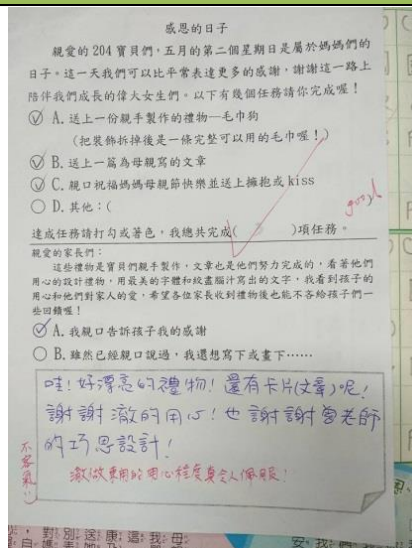 感恩的日子
親愛的204寶貝們，五月的第二個星期日是屬於媽媽們的
日子。這一天我們可以比平常表達更多的感謝，謝謝這一路上
陪伴我們成長的偉大女生們。以下有幾個任務請你完成喔！
A. 送上一份親手製作的禮物—毛巾狗
(把裝飾拆掉後是一條完整可以用的毛巾喔！)
B. 送上一篇為母親寫的文章
C. 親口祝福媽媽母親節快樂並送上擁抱或kiss
D. 其他：(
good
達成任務請打勾或著色，我總共完成( 3 )項任務。
親愛的家長們：
這些禮物是寶貝們親手製作，文章也是他們努力完成的，看著他們
用心的設計禮物，用最美的字體和絞盡腦汁寫出的文字，我看到孩子的
用心和他們對家人的愛，希望各位家長收到禮物後也能不吝給孩子們一
些回饋喔！
A. 我親口告訴孩子我的感謝
B. 雖然已經親口說過，我還想寫下或畫下……
哇！好漂亮的禮物！還有卡片(文章)呢！
謝謝澈的用心！也謝謝曾老師
的巧思設計！
不客氣
澈做東西的用心程度真令人佩服！